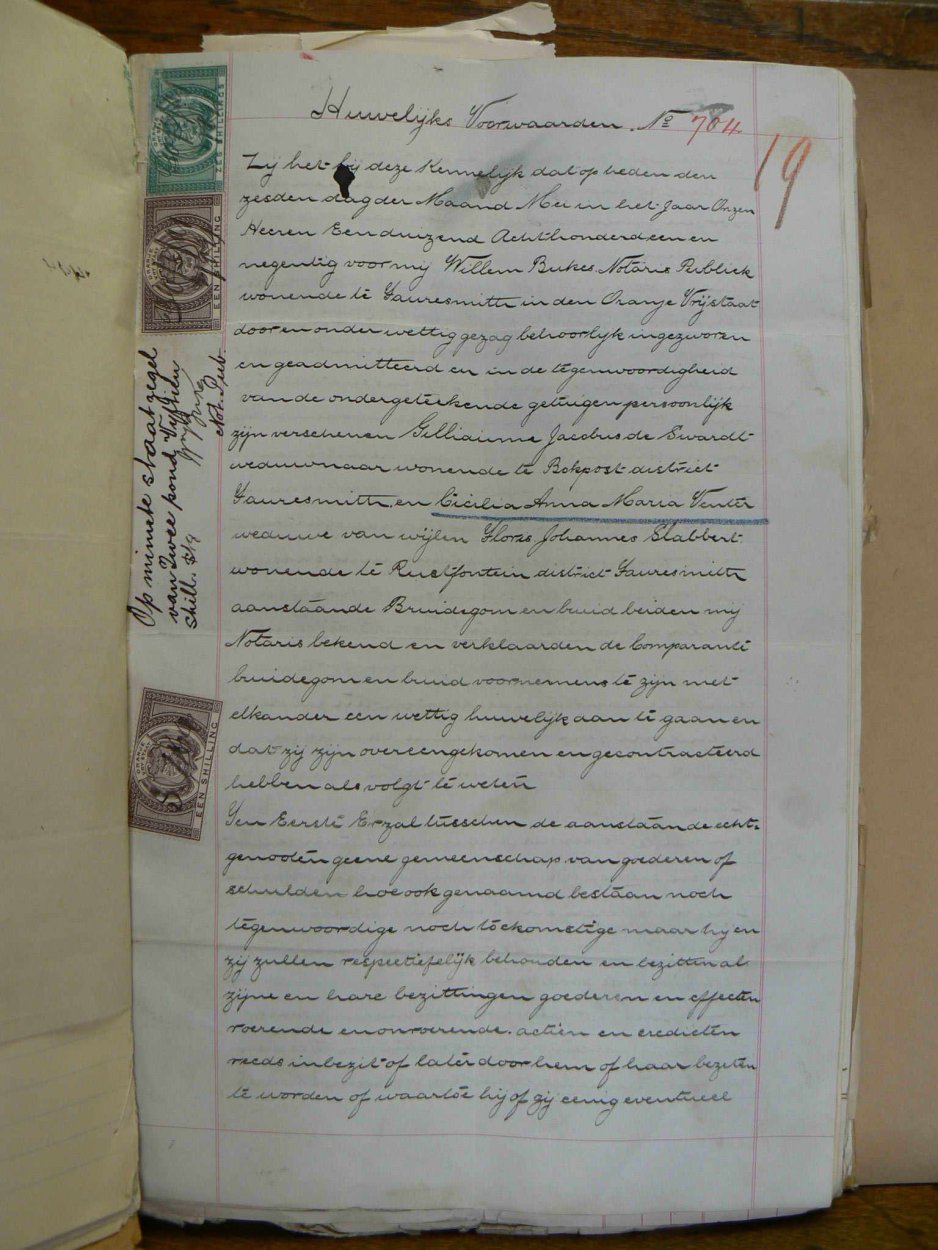 Huwelijks Voorwaarden. No 704
19
Zij het bij deze Kennelijk dat op heden den
zesden dag der Maand Mei in het Jaar Onzen
Heeren Eenduizend Achthonderd een en
negentig voor mij Willem Bukes Notaris Publiek
wonende te Fauresmith in den Oranje Vrijstaat
door en onder wettig gezag behoorlijk ingezworen
en geadmitteerd en in de tegenwoordigheid
van de ondergeteekende getuigen persoonlijk
zijn verschenen Gilliaume Jacobus de Swardt
weduwnaar wonende te Bokpost district
Fauresmith, en Cicilia Anna Maria Venter
weduwe van wijlen Floras Johannes Slabbert
wonende te Rustfontein district Fauresmith
aanstaande Bruidegom en bruid beiden mij
Notaris bekend en verklaarden de Comparante
bruidegom en bruid voornemens te zijn met
elkander een wettig huwelijk aan te gaan en
dat zij zijn overeengekomen en gecontracteerd
hebben als volgt te weten
Ten Eerste Er zal tusschen de aanstaande echt-
genooten geene gemeenschap van goederen of
schulden hoe ook genaamd bestaan noch
tegenwoordige noch toekomstige maar hij en
zij zullen respectiefelijk behouden en bezitten al
zijne en hare bezittingen goederen en effecten
roerende en onroerende. actien en credieten
reeds in bezit of later door hem of haar bezeten
te worden of waartoe hij of zij eenig eventueel
Op minute staat zegel
van Twee pond Vijftien
shill. $19
Not. Pub.
ZES SHILLINGS
EEN SHILLING
EEN SHILLING